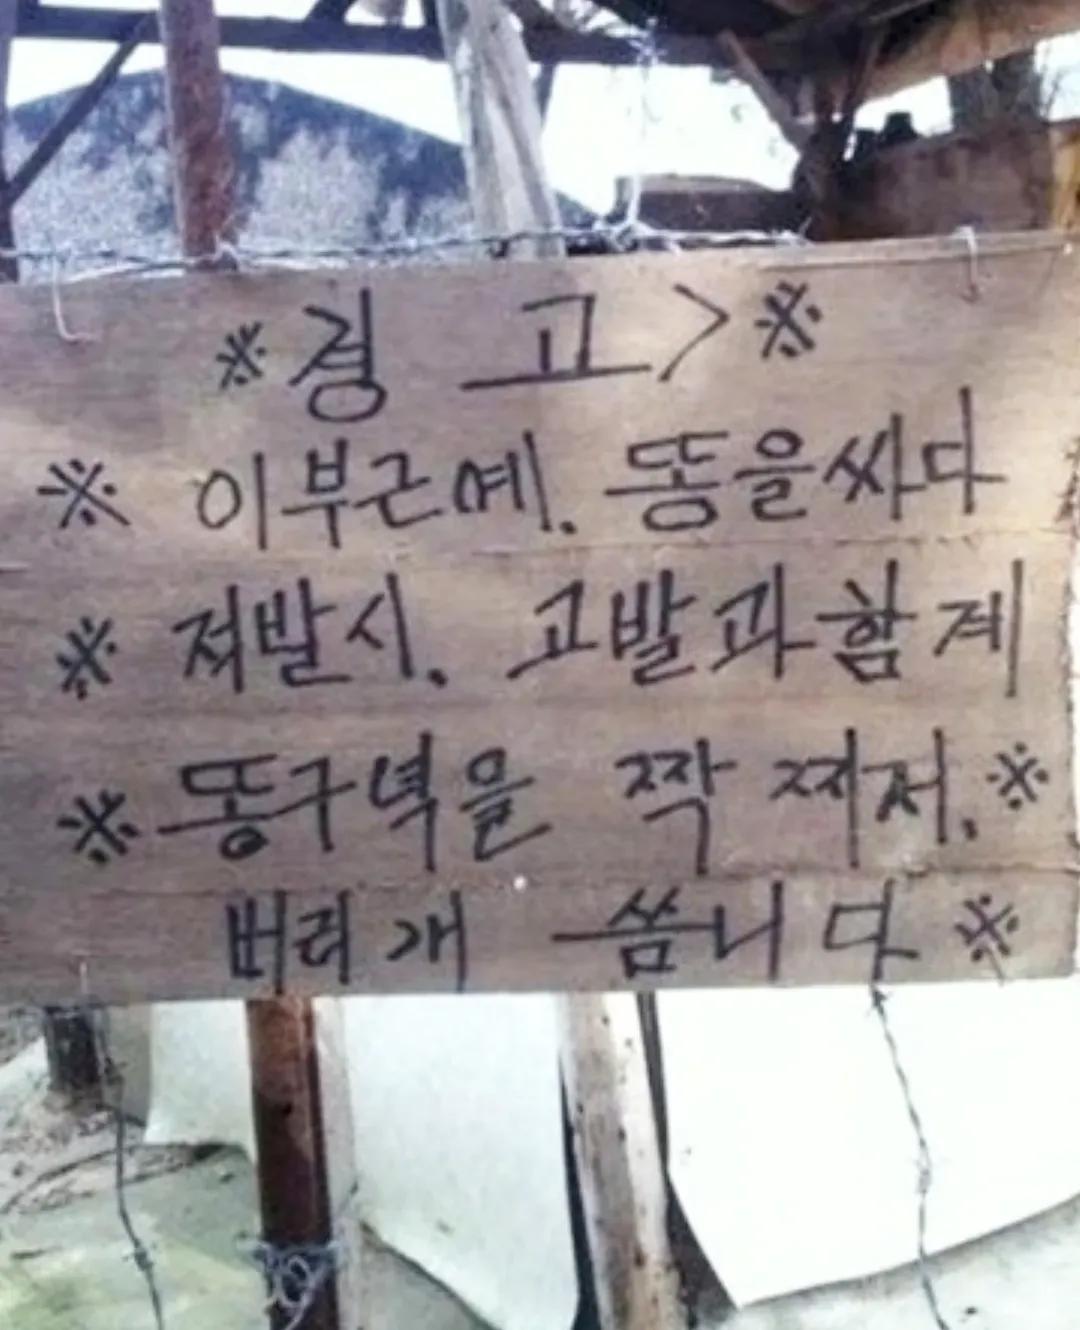 ※경 고>※
※ 이부근예. 똥을싸다
※ 저발시. 고발과함게
※똥구녁을 짝 찌저.※
버리개 씀니다※